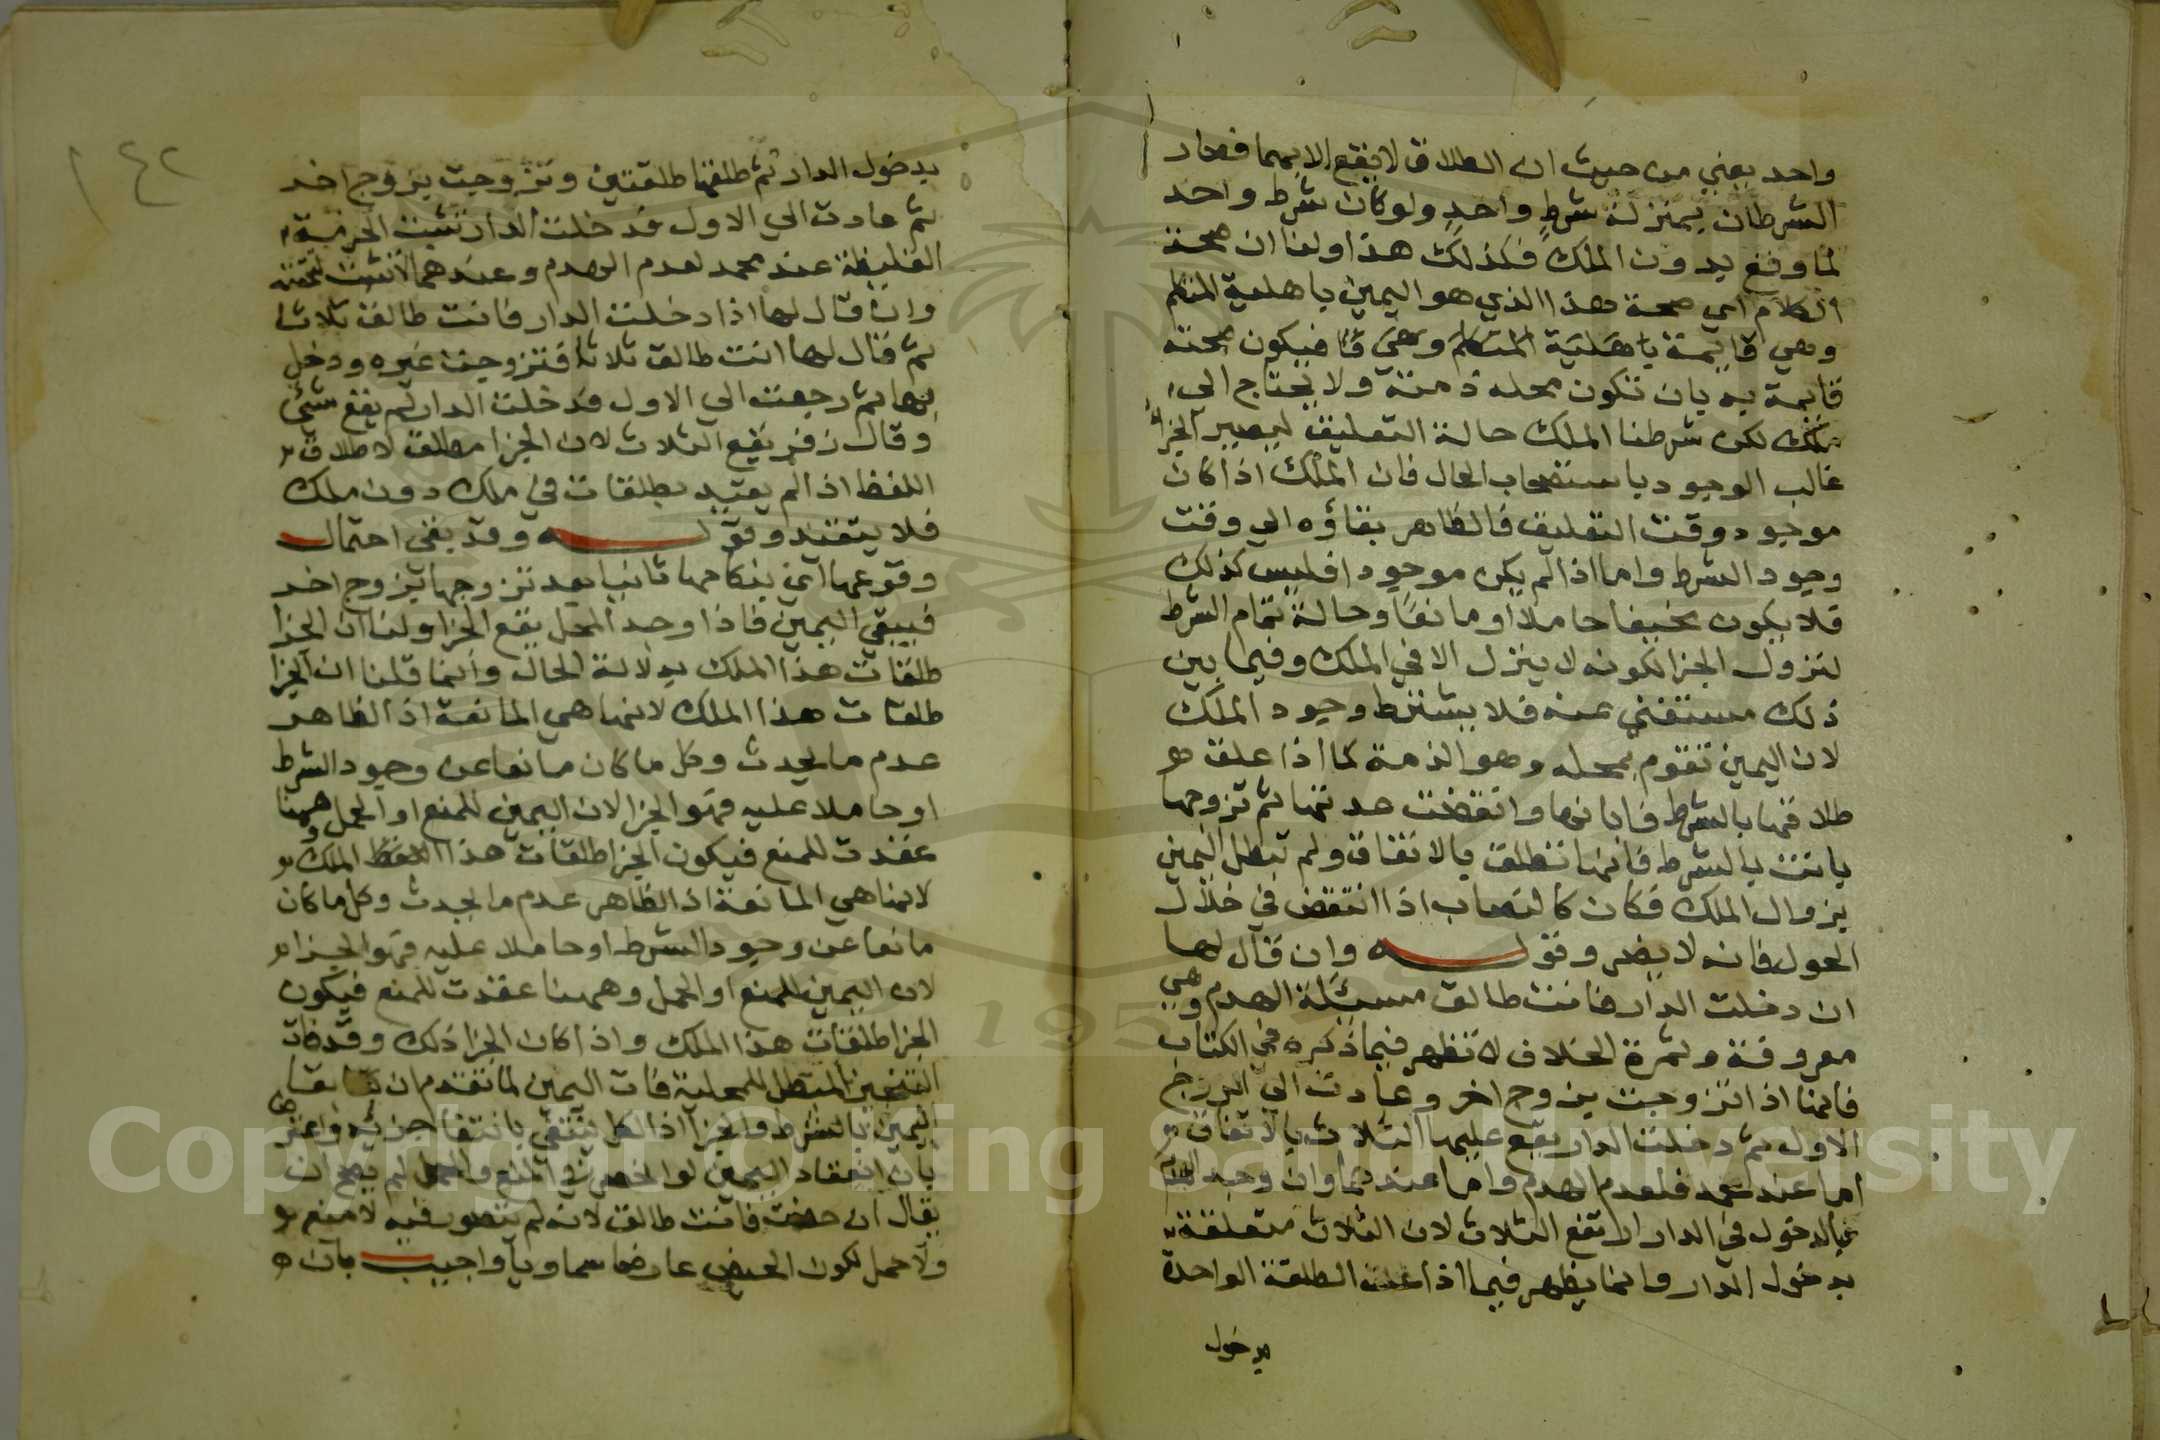 واحد يعني من حيث ان الطلاق لا يقع الا بهما فصار
الشرطان بمنزلة شرط واحد ولو كان شرط واحد
لما وقع بدون الملك فكذلك هذا ولنا ان صحة
الكلام اي صحة هذا الذي هو اليمين باهلية المتكلم
وهي قايمة باهلية المتكلم وهي فيكون صحته
قايمة به بان تكون محله ذمته ولا يحتاج الى
لكن شرطنا الملك حالة التعليق ليصير الجزا
غالب الوجود باستصحاب الحال فان الملك اذا كان
موجود وقت التعليق فالظاهر بقاؤه الي وقت
وجود الشرط واما اذا لم يكن موجودا فليس كذلك
فلا يكون مخيفا حاملا او مانعا وحالة تمام الشرط
لنزول الجزا لكونه لا ينزل الا في الملك وفيما بين
ذلك مستغني عنه فلا يشترط وجود الملك
لان اليمين تقوم بمحله وهو الذمة كما اذا علق
طلاقها بالشرط فابانها وانقضت عدتها ثم تزوجها
ياتت بالشرط فانها تطلق بالاتفاق ولم تبطل اليمين
بزوال الملك فكان كالنصاب اذا انتقض في خلال
الحول فانه لا يضر وقولـــه وان قال لها
ان دخلت الدار فانت طالق مسئلة الهدم وهي
معروفة وثمرة الخلاف لا تظهر فيما ذكره في الكتاب
فانها اذا تزوجت بزوج اخر وعادت الي الزوج
الاول ثم دخلت الدار يقع عليها الثلاث بالاتفاق
اما عند محمد فلعدم الهدم واما عندهما وان وجد الهدم
فبالدخول في الدار لا تقع الثلاث لان الثلاث متعلقة
بدخول الدار وانما يظهر فيما اذا علق الطلقة الواحدة
بدخول
١٤٢
بدخول الدار ثم طلقها طلقتين وتزوجت بزوج اخر
ثم عادت الي الاول فدخلت الدار تثبت الحرمة
الغليظة عند محمد لعدم الهدم وعندهما لا تثبت
وان قال لها اذا دخلت الدار فانت طالق ثلاثا
ثم قال لها انت طالق ثلاثا فتزوجت غيره ودخل
بها ثم رجعت الي الاول فدخلت الدار لم يقع شئ
وقال زفر يقع الثلاث لان الجزا مطلق لاطلاق
اللفظ اذا لم يقيد بطلقات في ملك دون ملك
فلا يتقيد وقولـــه وقد بقي احتمال
وقوعها اي بنكاحها ثانيا بعد تزوجها بزوج اخر
فيبقي اليمين فاذا وجد المحل يقع الجزا ولنا ان الجزا
طلقات هذا الملك بدلالة الحال وانما قلنا ان الجزا
طلقات هذا الملك لانها هي المانعة اذ الظاهر
عدم ما يحدث وكل ما كان مانعا عن وجود الشرط
او حاملا عليه فهو الجزا لان اليمين للمنع او الحمل وههنا
عقدت للمنع فيكون الجزا طلقات هذا الملك
لانها هي المانعة اذ الظاهر عدم ما يحدث وكل ما كان
مانعا عن وجود الشرط او حاملا عليه فهو الجزا
لان اليمين للمنع او الحمل وههنا عقدت للمنع فيكون
الجزا طلقات هذا الملك واذا كان الجزا ذلك وقد فات
التنجيز المبطل للمحلية فات اليمين لما تقدم ان بقا
اليمين بالشرط والجزا اذ الكل ينتفي بانتفا جزئه واعترض
بان انعقاد اليمين لو انحصر في المنع والحمل لم يصح ان
يقال ان حضت فانت طالق لانه لم يتصور فيه لا منع
ولا حمل لكون الحيض عارضا سماويا واجيب بان
Copyright © King Saud University
195